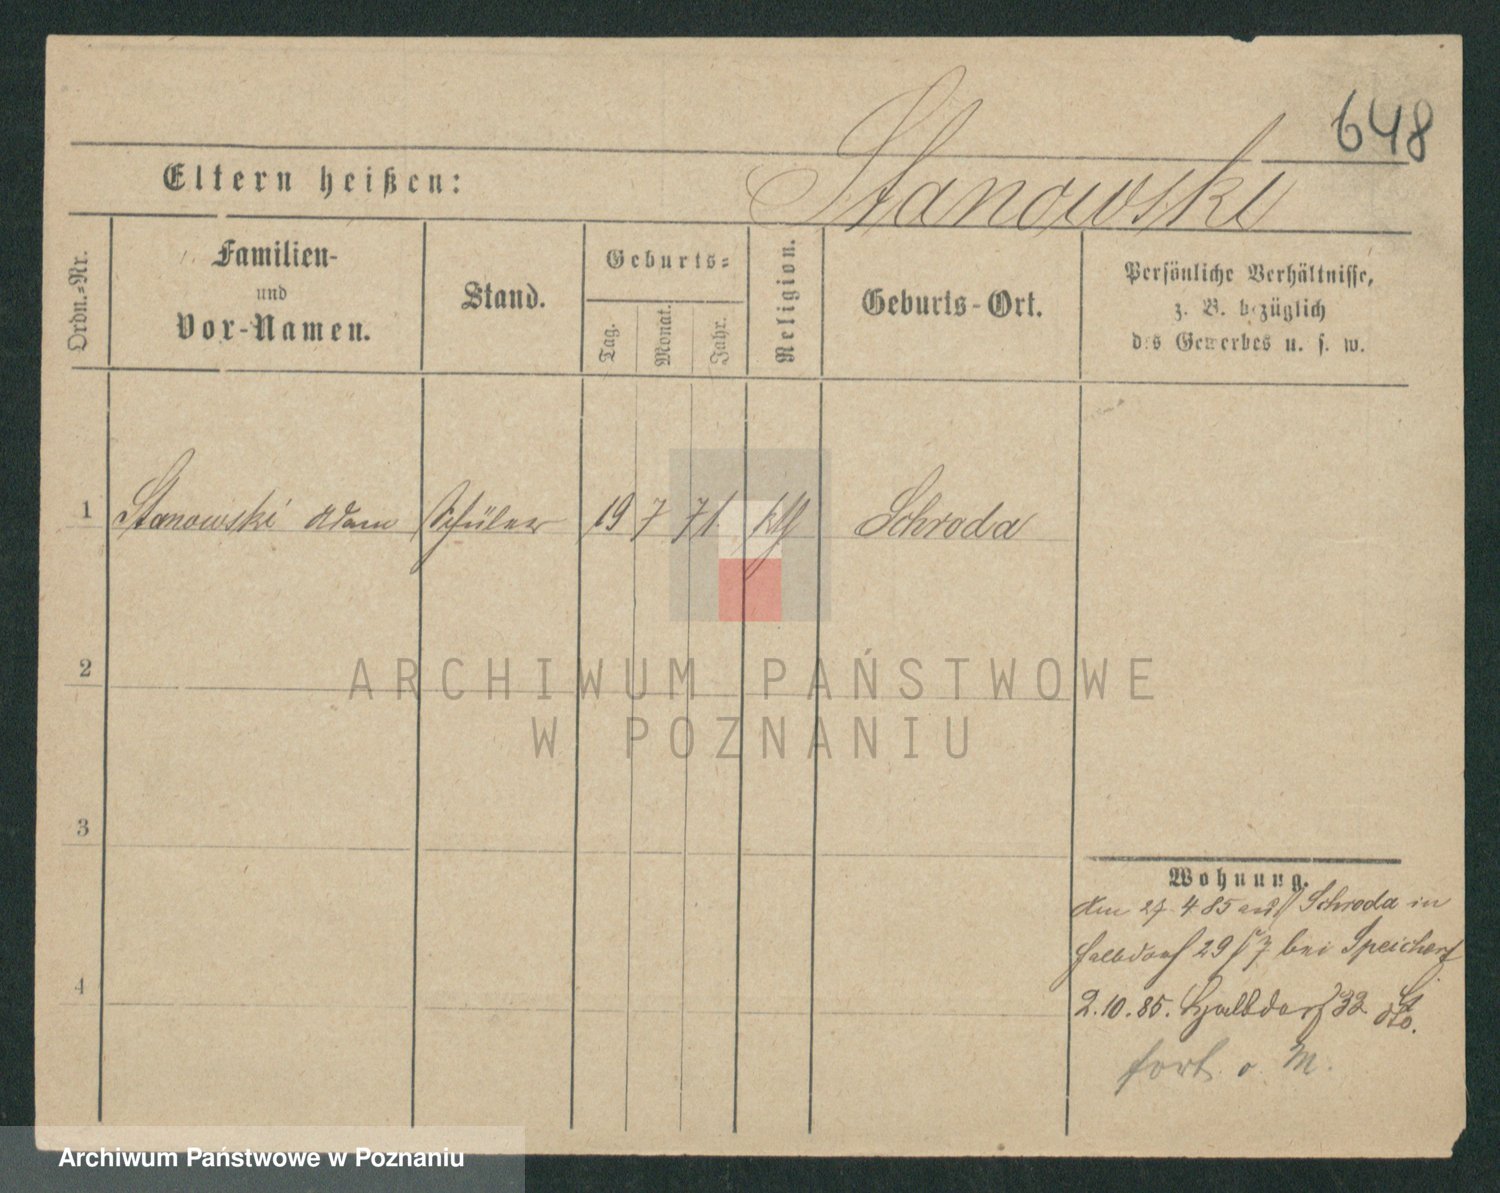 648
Stanowski
Eltern heißen:
Ordn.-Nr.
Familien-
und
Vor-Namen.
Stand.
Geburts-
Tag.
Monat.
Jahr.
Religion.
Geburts-Ort.
Persönliche Verhältnisse,
z. B. bezüglich
des Gewerbes u. s. w.
1 Stanowski Adam Schüler 19 7 71 kth Schroda
2
ARCHIWUM PAŃSTWOWE
W POZNANIU
3
Wohnung.
den 27 4 85 aus Schroda in
Halbdorf 29 bei Speichert
4
2.10.85. Halbdorf 32
fort o. M.
Archiwum Państwowe w Poznaniu